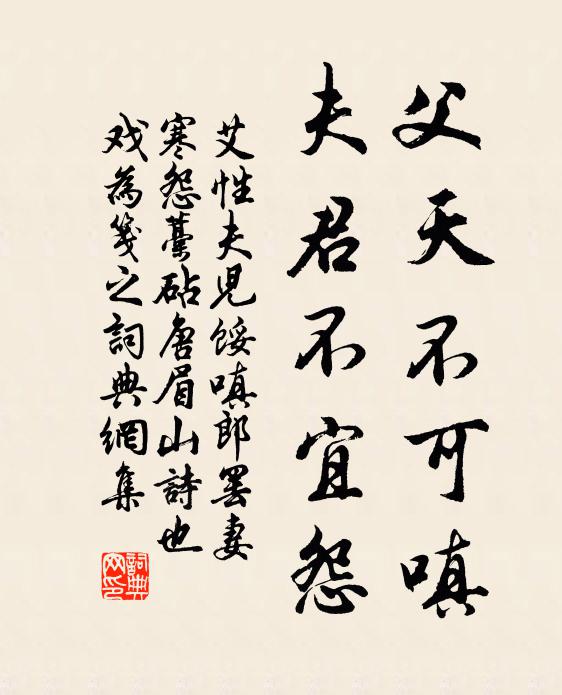 父天不可嗔
夫君不宜怨
艾性夫児餒嗔郎罢妻
寒怨藁砧唐眉山詩也
戏為箋之詞典網集
詞典网印